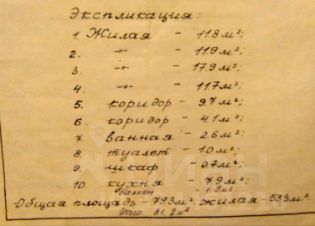 Экспликация:
1. Жилая - 11.8 м²;
2. -"- - 11.9 м²;
3. -"- - 17.9 м²;
4. -"- - 11.7 м²;
5. коридор - 9.7 м²;
6. коридор - 4.1 м²;
7. ванная - 2.6 м²;
8. туалет - 1.0 м²;
9. шкаф - 0.7 м²;
10. кухня - 7.9 м²;
балкон - 1.9 м²
Общая площадь - 79.3 м²; жилая - 53.3 м²
Итого 81.2 м²